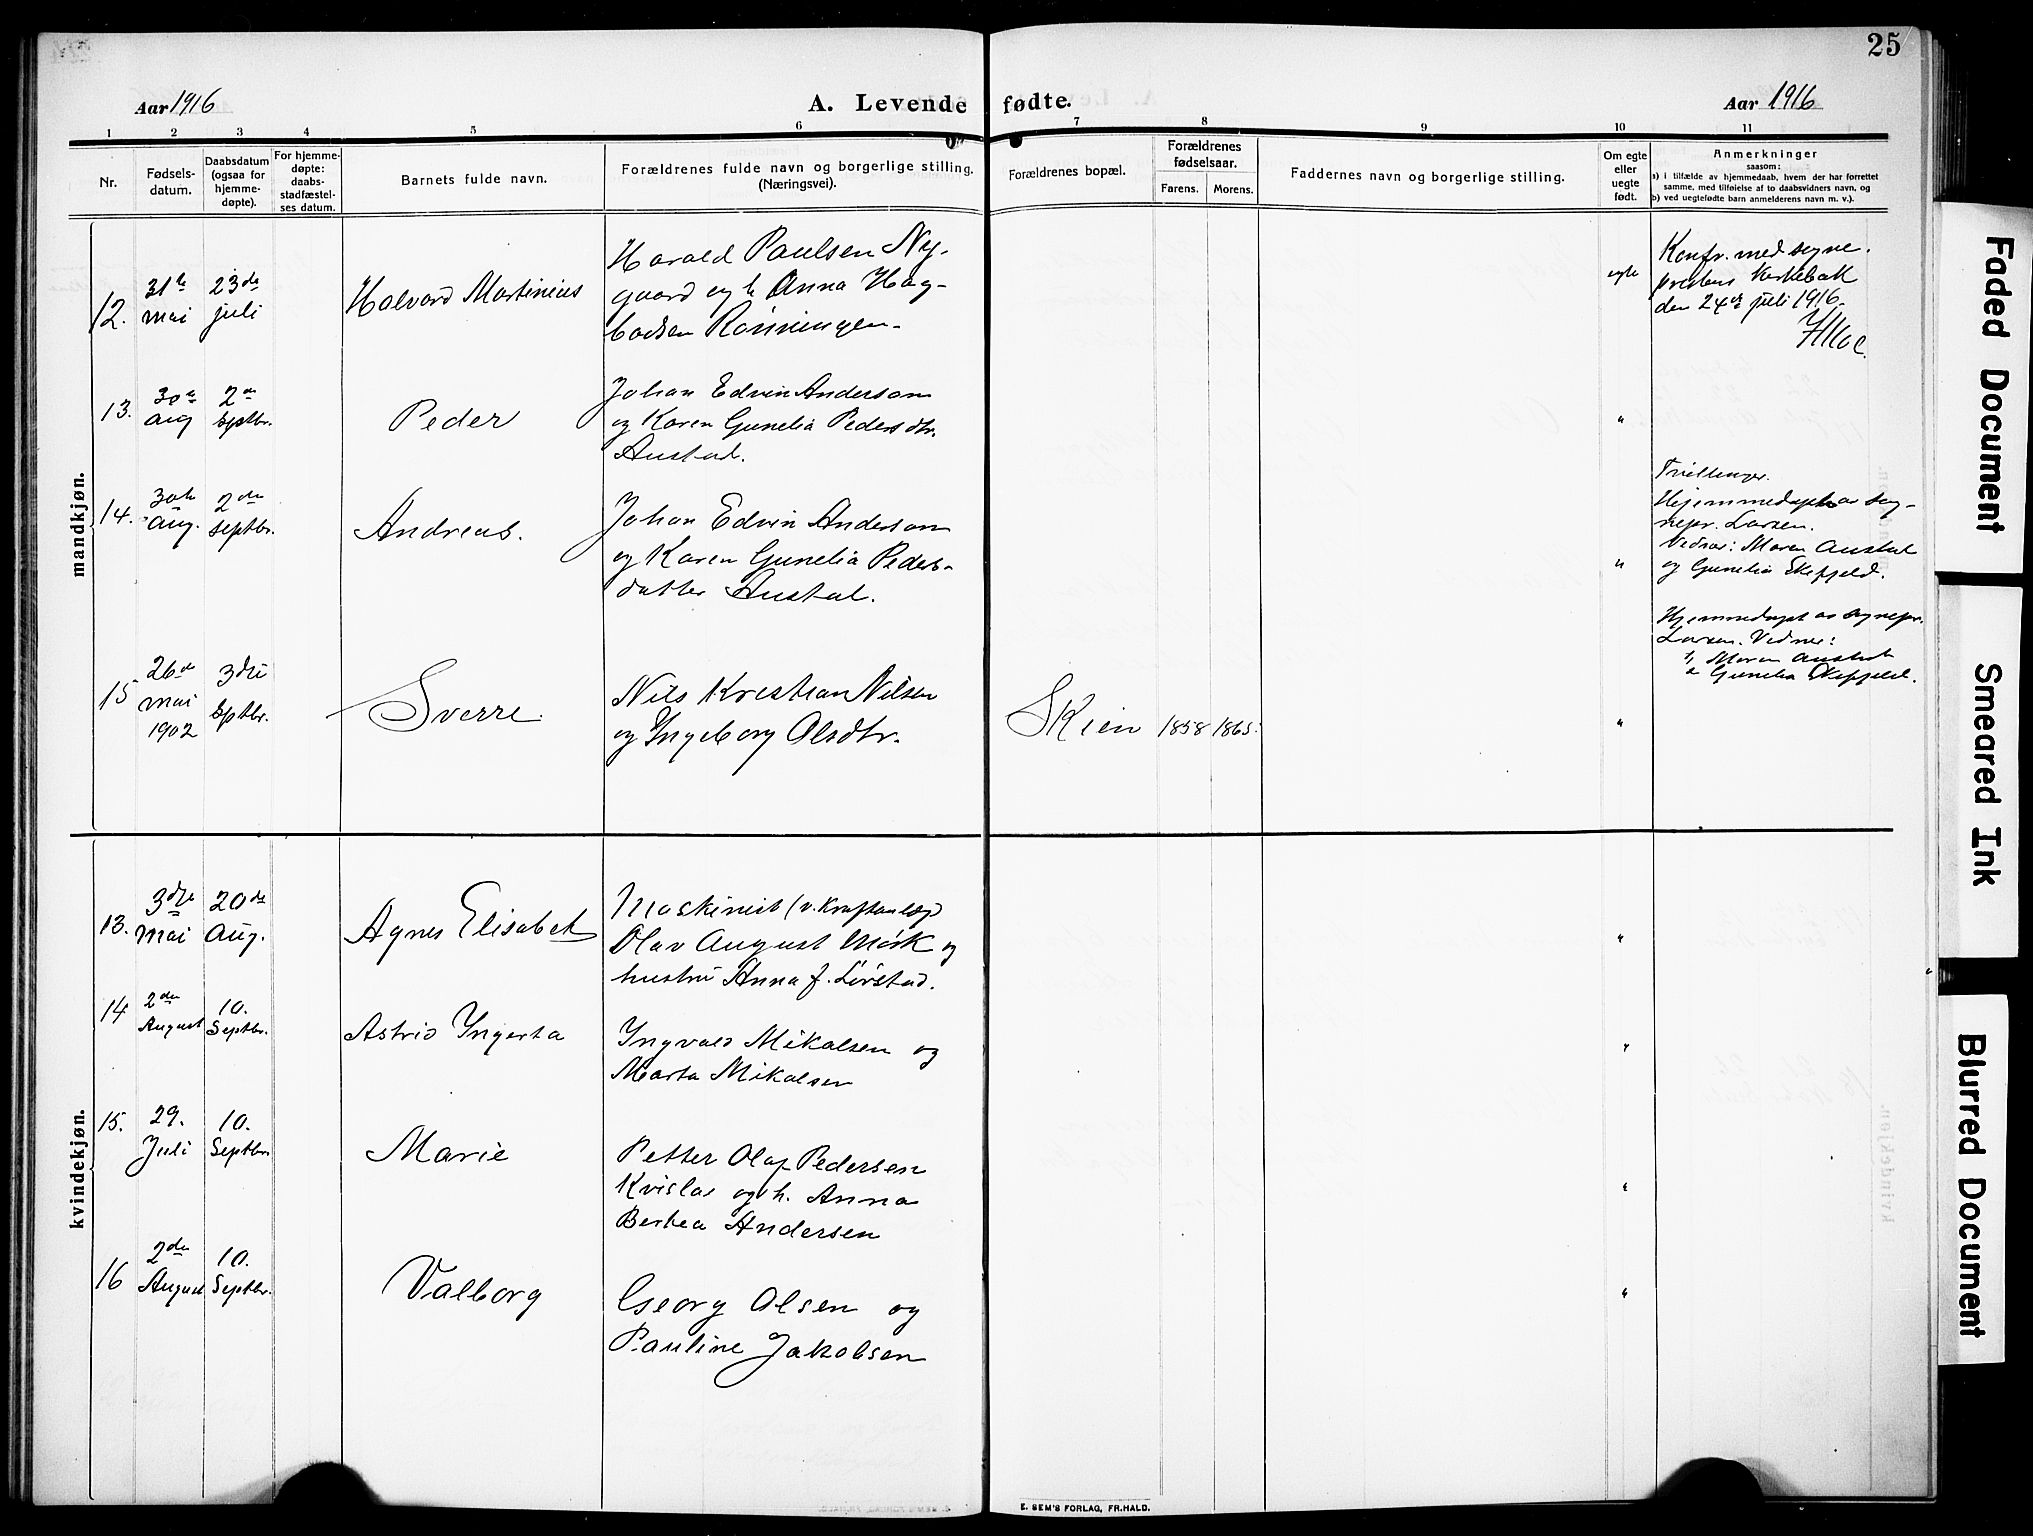 25
Aar 1916
A. Levende fødte.
Aar 1916
1 2 3 4 5 6 7 8 9 10 11
Nr.
Fødsels-
datum.
Daabsdatum
(ogsaa for
hjemme-
døpte).
For hjemme-
døpte:
daabs-
stadfæstel-
ses datum.
Barnets fulde navn.
Forældrenes fulde navn og borgerlige stilling.
(Næringsvei).
Forældrenes bopæl.
Forældrenes
fødselsaar.
Farens. Morens.
Faddernes navn og borgerlige stilling.
Om egte
eller
uegte
født.
Anmerkninger
saasom:
a) i tilfælde av hjemmedaab, hvem der har forrettet
samme, med tilføielse af to daabsvidners navn, og
b) ved uegtefødte barn anmelderens navn m. v.).
mandkjøn.
12.
31te
mai
23de
juli
Halvard Martinius
Harald Paulsen Ny-
gaard og h. Anna Hag-
badsen Rønningen.
egte
Konfr. med sogne-
prestens kirkebok
den 24de juli 1916.
13.
30te
aug
2den
Septbr.
Peder
Johan Edvin Anderson
og Karen Gunelia Pedersdtr.
Austad.
"
14.
30te
Aug.
2den
Septbr.
Andreas.
Johan Edvin Anderson
og Karen Gunelia Peders-
datter Austad.
"
Tvillinger.
Hjemmedøpt av Sog-
nepr. Larsen.
Vidner: Maren Austad
og Gunelia Skifjeld.
15
26de
mai
1902
3die
Septbr.
Sverre.
Nils Kristian Nilsen
og Ingeborg Olsdtr.
Skien
1858
1865.
"
Hjemmedøpt av Sognepr.
Larsen. Vidner:
1, Maren Austad
2 Gunelia Skifjeld.
kvindekjøn.
13.
3die
Mai
20de
Aug.
Agnes Elisabet
Maskinist (v. Kraftanlæg)
Olav August Mørk og
hustru Anna f. Lørstad.
"
14
2den
August
10.
Septbr.
Astrid Ingerta
Ingvald Mikalsen og
Marta Mikalsen
"
15.
29.
Juli
10.
Septbr.
Marie
Petter Olaf Pedersen
Kvislae og h. Anna
Berhea Andersen
"
16
2den
August
10.
Septbr.
Valborg
Georg Olsen og
Pauline Jakobsen
"
E. SEM'S FORLAG, FR.HALD.
Faded Document
Smeared Ink
Blurred Document